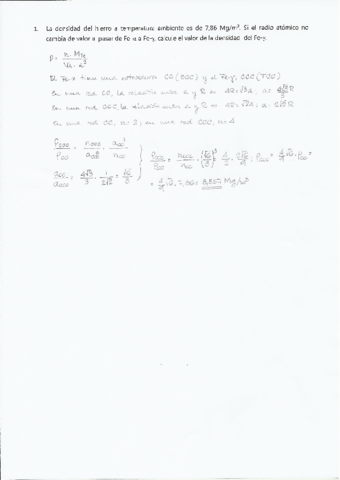 1. La densidad del hierro a temperatura ambiente es de 7,86 Mg/m³. Si el radio atómico no
cambia de valor al pasar de Fe-α a Fe-γ, calcule el valor de la densidad del Fe-γ.
ρ = n · M_Fe / N_A · a³
El Fe-α tiene una estructura CC (BCC) y el Fe-γ, CCC (FCC)
En una red CC, la relación entre a y R es 4R = √3a; a = 4√3/3 R
En una red CCC, la relación entre a y R es 4R = √2a; a = 2√2 R
En una red CC, n = 2; en una red CCC, n = 4
ρ_CCC / ρ_CC = n_CCC / a_CCC³ · a_CC³ / n_CC
a_CC / a_CCC = 4√3/3 · 1/2√2 = √6/3
ρ_CCC / ρ_CC = n_CCC / n_CC · (√6/3)³ =